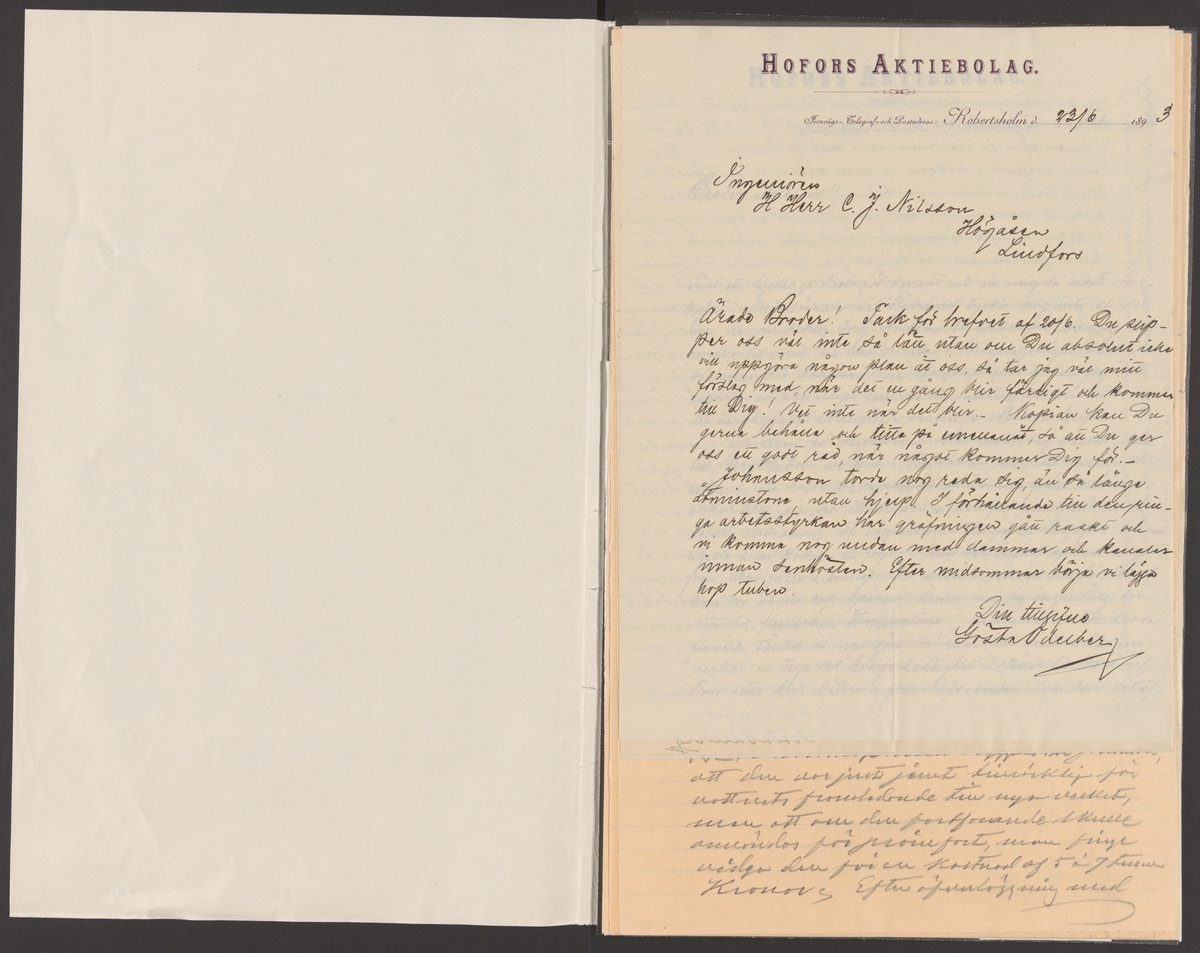 HOFORS AKTIEBOLAG.
Jernvägs-, Telegraf- och Postadress: Robertsholm d. 23/6 1893
Ingeniören
H Herr C. J. Nilsson
Högåsen
Lindfors
Ärade Broder! Tack för brefvet af 20/6. Du slip-
per oss väl inte så lätt utan om Du absolut icke
vill uppgöra någon plan åt oss, så tar jag väl mitt
förslag med, när det en gång blir färdigt och kommer
till Dig! Vet inte när det blir. – Kopian kan Du
gerna behålla och titta på emellanåt, så att Du ger
oss ett godt råd, när något kommer Dig för. –
Johansson torde nog reda sig, än så länge
åtminstone, utan hjelp. I förhållande till den rin-
ga arbetsstyrkan har gräfningen gått raskt och
vi komma nog undan med dammar och kanaler
innan senhösten. Efter midsommar börja vi lägga
hop tuben.
Din tillgifne
Gösta Odelberg
att den var just jämt tillräcklig för
vattnets framledande till nya verket,
men att om den fortfarande skulle
användas för pråmfart, man finge
vidga den för en kostnad af 5 à 7 tusen
Kronor. Efter öfverläggning med